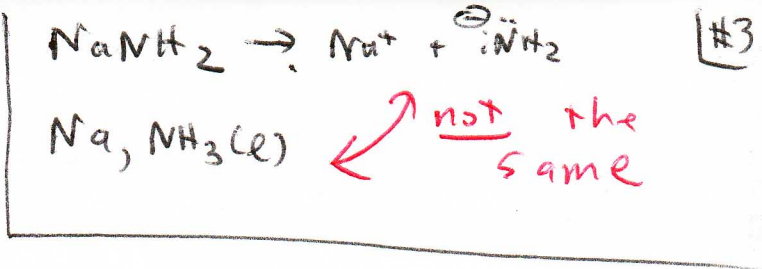 NaNH₂ → Na⁺ + ⊖:N̈H₂ #3
Na, NH₃(l) not the
same